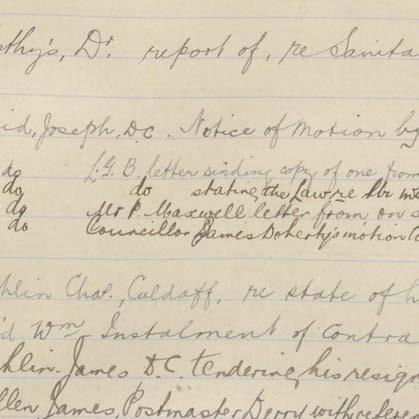 thy's, Dr. report of, re Sanita
id, Joseph, D.C. Notice of Motion by
do L.G.B. letter sending copy of one from
do do stating the Law re
do Mr P. Maxwell letter from on s
do Councillor James Doherty's motion
hlin Chas., Culdaff, re state of
d Wm Instalment of Contra
hlin. James D.C. tendering his resign
llen James, Postmaster Derry with refer